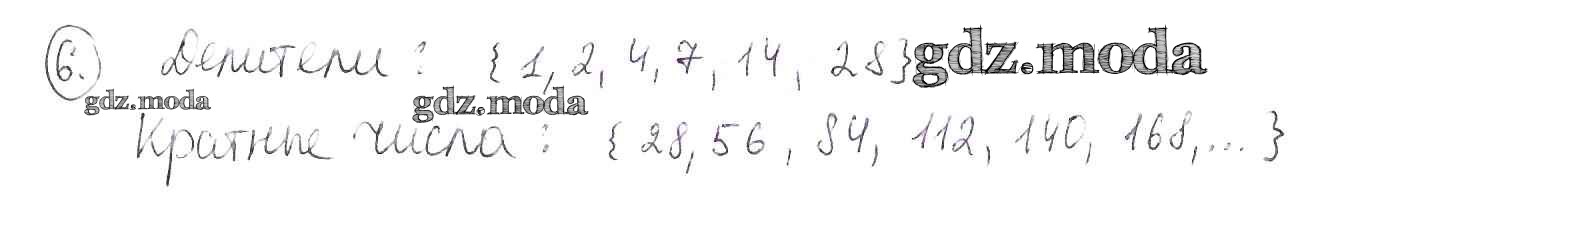 6. Делители: {1, 2, 4, 7, 14, 28} gdz.moda
gdz.moda gdz.moda
Кратные числа: {28, 56, 84, 112, 140, 168, ...}